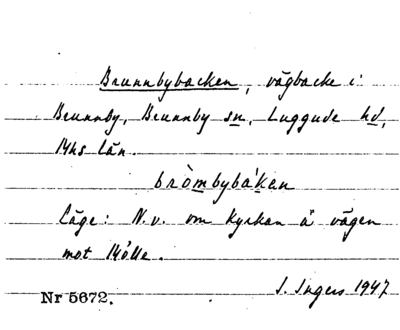 Brunnbybacken, vägbacke i
Brunnby, Brunnby sn, Luggude hd,
Mhs län.
bròmbybákan
Läge: N.v. om kyrkan å vägen
mot Mölle.
I. Ingers 1947
Nr 5672.